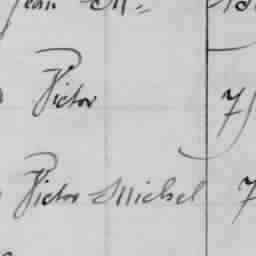 Jean M.
Victor 7
Victor Michel 7